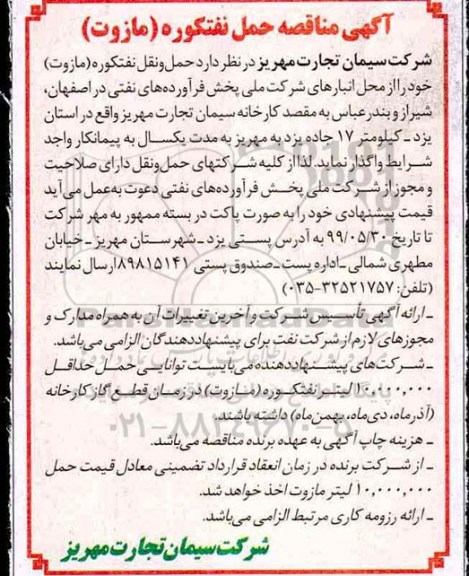 آگهی مناقصه حمل نفتکوره (مازوت)
شرکت سیمان تجارت مهریز در نظر دارد حمل‌ونقل نفتکوره (مازوت)
خود را از محل انبارهای شرکت ملی پخش فرآورده‌های نفتی در اصفهان،
شیراز و بندرعباس به مقصد کارخانه سیمان تجارت مهریز واقع در استان
یزد ـ کیلومتر ۱۷ جاده یزد به مهریز به مدت یکسال به پیمانکار واجد
شرایط واگذار نماید. لذا از کلیه شرکتهای حمل‌ونقل دارای صلاحیت
و مجوز از شرکت ملی پخش فرآورده‌های نفتی دعوت به‌عمل می‌آید
قیمت پیشنهادی خود را به صورت پاکت در بسته ممهور به مهر شرکت
تا تاریخ ۹۹/۰۵/۳۰ به آدرس پستی یزد ـ شهرستان مهریز ـ خیابان
مطهری شمالی ـ اداره پست ـ صندوق پستی ۸۹۸۱۵۱۴۱ ارسال نمایند
(تلفن: ۳۲۵۲۱۷۵۷-۰۳۵)
ـ ارائه آگهی تأسیس شرکت و آخرین تغییرات آن به همراه مدارک و
مجوزهای لازم از شرکت نفت برای پیشنهاددهندگان الزامی می‌باشد.
ـ شرکت‌های پیشنهاددهنده می‌بایست توانایی حمل حداقل
۱۰,۰۰۰,۰۰۰ لیتر نفتکوره (مازوت) در زمان قطع گاز کارخانه
(آذرماه، دی‌ماه، بهمن‌ماه) داشته باشند.
ـ هزینه چاپ آگهی به عهده برنده مناقصه می‌باشد.
ـ از شرکت برنده در زمان انعقاد قرارداد تضمینی معادل قیمت حمل
۱۰,۰۰۰,۰۰۰ لیتر مازوت اخذ خواهد شد.
ـ ارائه رزومه کاری مرتبط الزامی می‌باشد.
شرکت سیمان تجارت مهریز